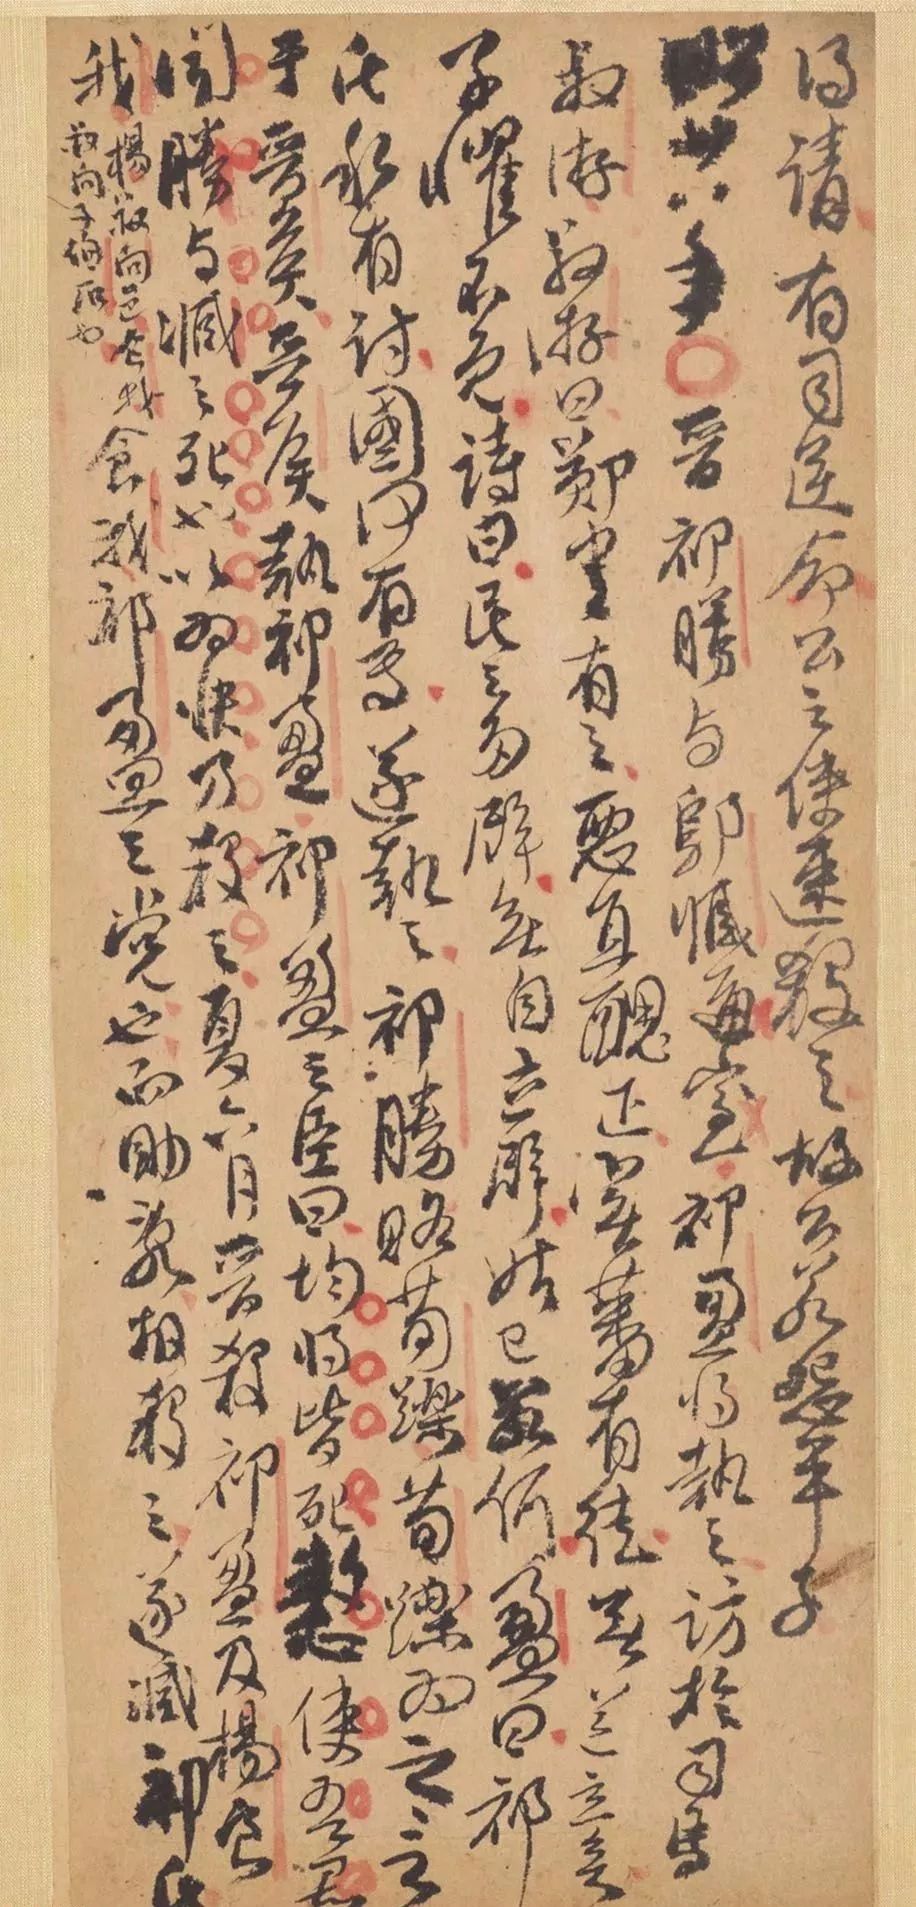 得請有司逆命公之使速殺之故公若怨平子
昭廿八年晉祁勝与鄔臧通室祁盈將執之訪於司馬
叔游叔游曰鄭書有之惡直醜正實蕃有徒無道立矣
子懼不免詩曰民之多辟無自立辟姑已若何盈曰祁
氏私有討國何有焉遂執之祁勝賂荀躒荀躒为之言
于晉矦晉矦執祁盈祁盈之臣曰均將皆死憖使吾君
聞勝与臧之死也以为快乃殺之夏六月晉殺祁盈及楊食
我
楊叔向邑食我
叔向子伯石也
食我祁盈之党也而助亂故殺之遂滅祁氏